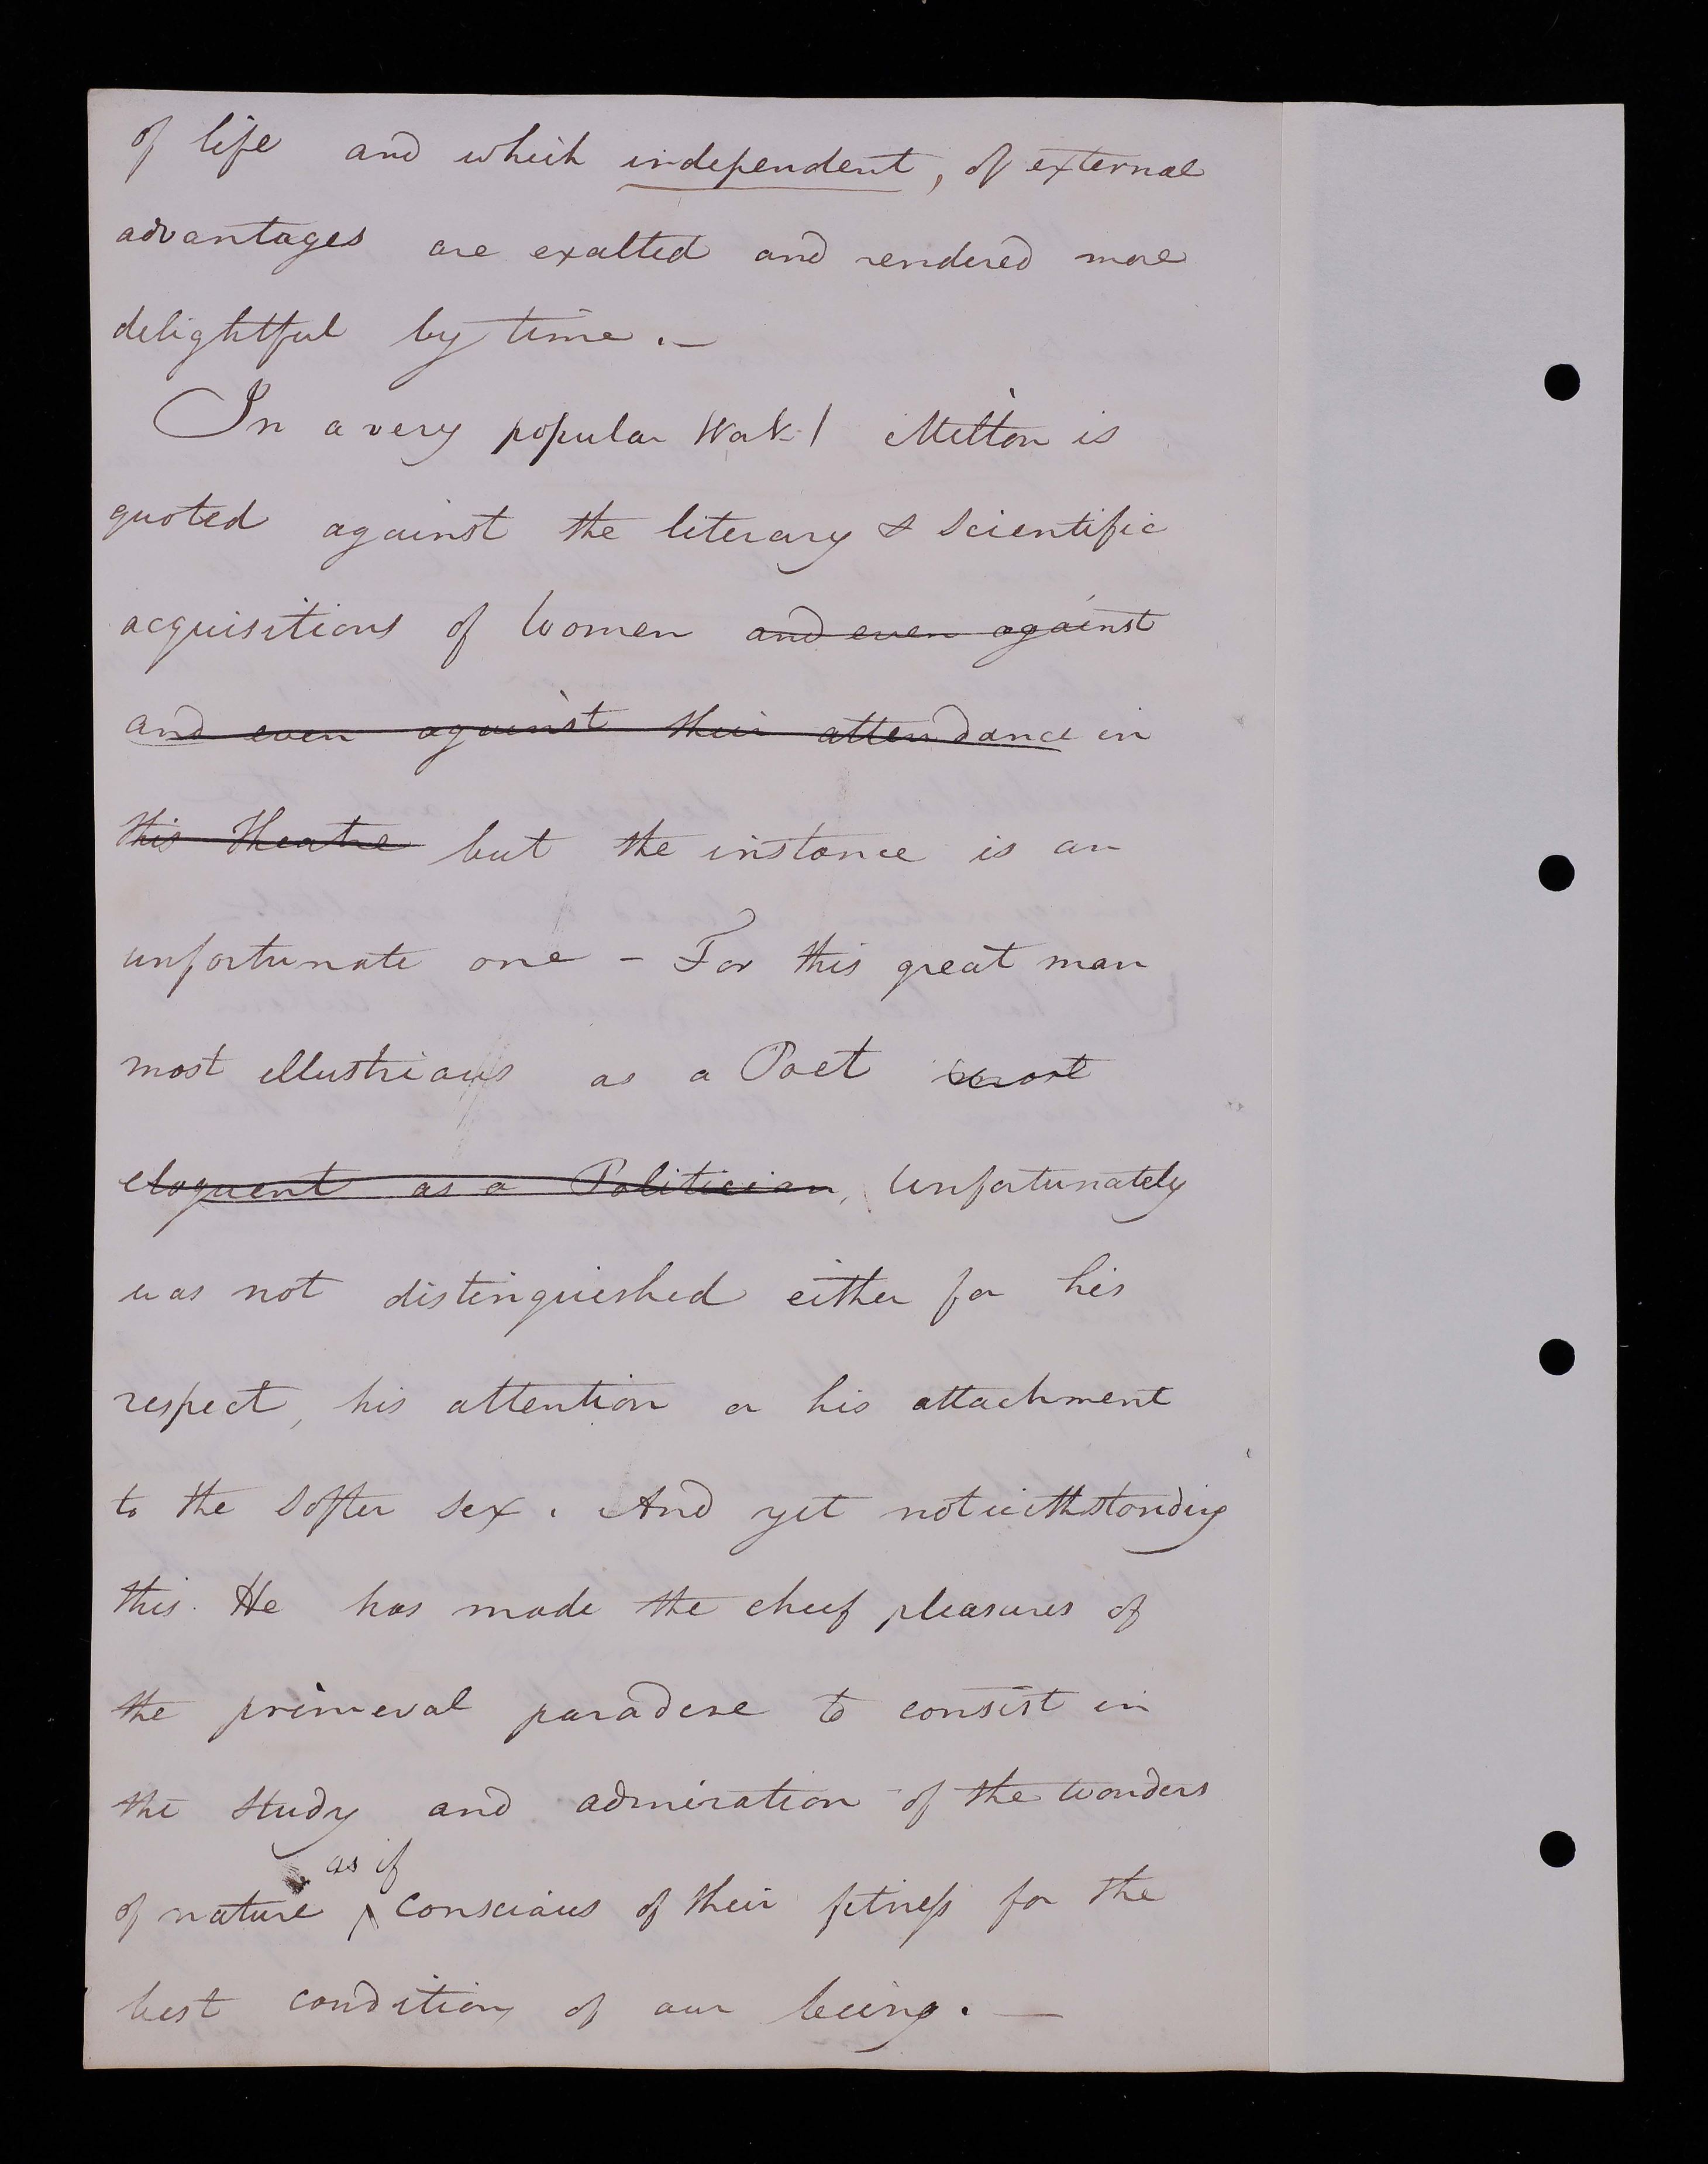 of life and which independent, of external
advantages are exalted and rendered more
delightful by time. —
In a very popular Work / Milton is
quoted against the literary & Scientific
acquisitions of Women and even against
and even against their attendance in
this Theatre but the instance is an
unfortunate one – For this great man
most illustrious as a Poet most
eloquent as a Politician, Unfortunately
was not distinguished either for his
respect, his attention or his attachment
to the Softer Sex. And yet notwithstanding
this. He has made the cheif pleasures of
the primeval paradise to consist in
the Study and admiration of the wonders
as if
of nature ^ Conscious of their fitness for the
best condition of our being. —